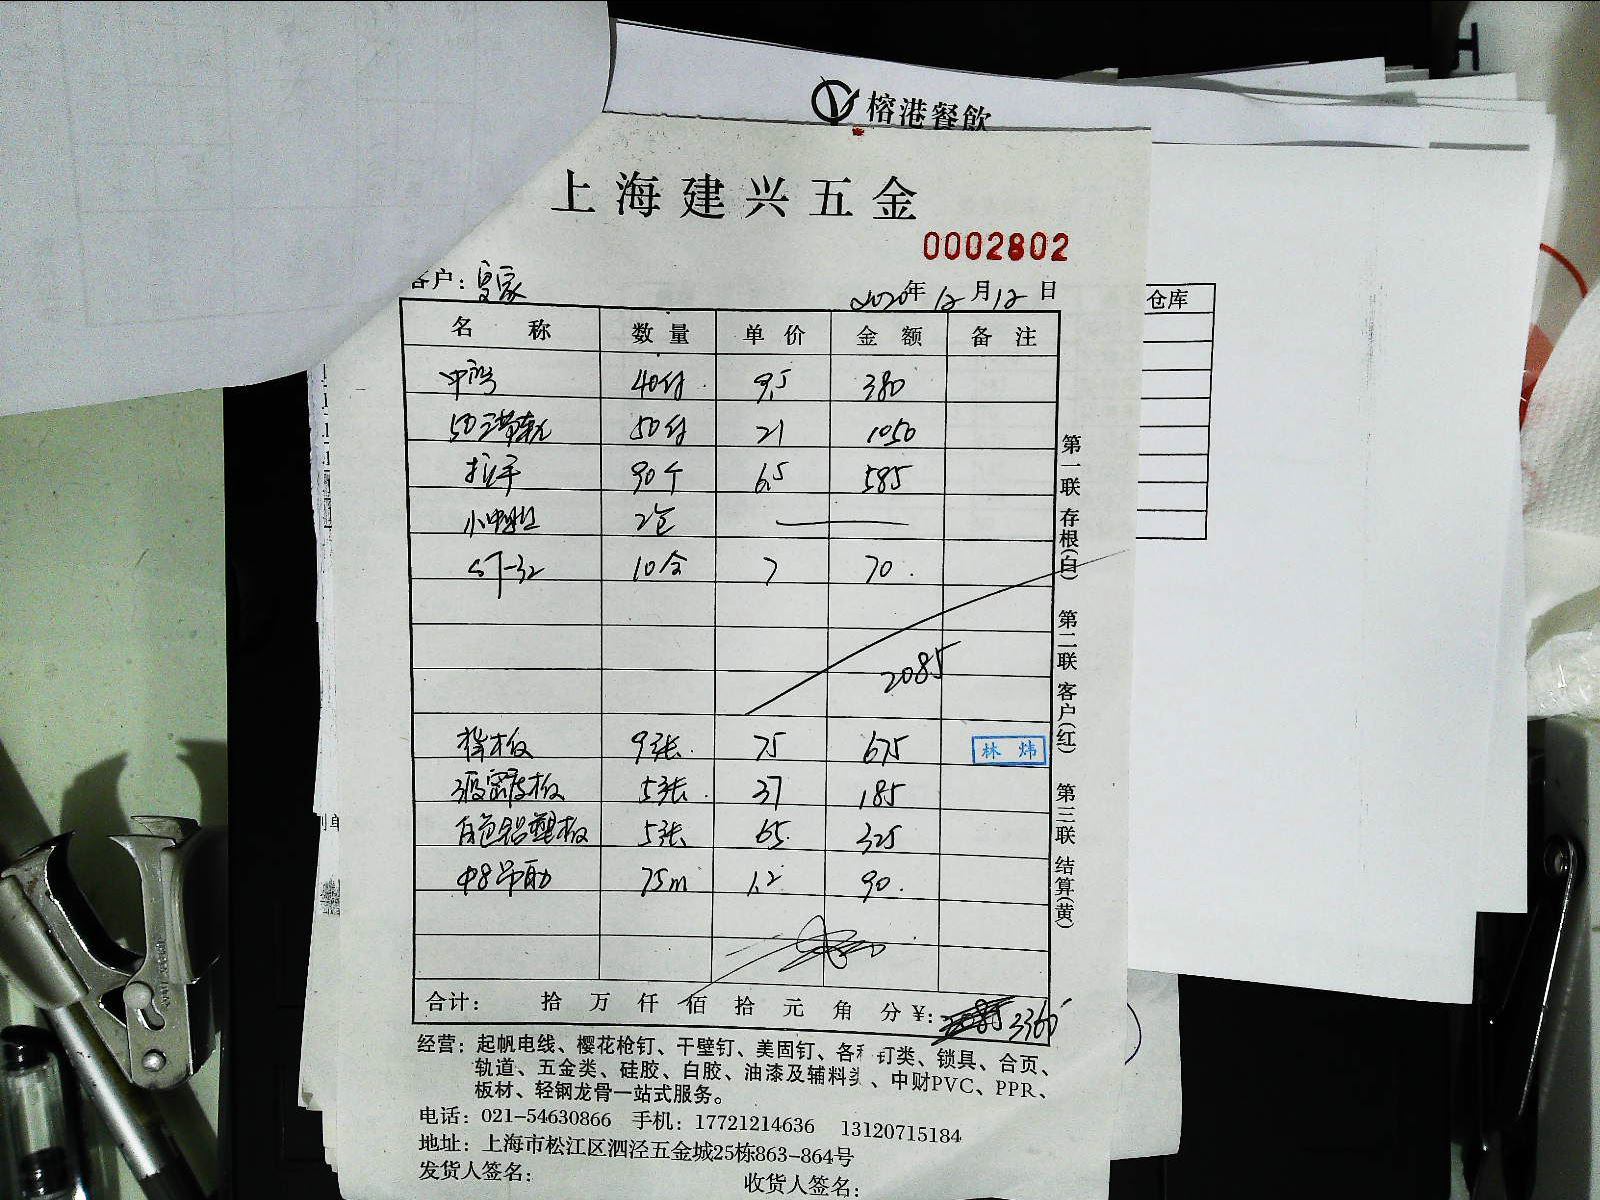 榕港餐飲
上海建兴五金
0002802
客户：皇家
2020年12月12日
仓库
名称 数量 单价 金额 备注
中弯 40付 9.5 380
50三节轨 50付 21 1050
拉手 90个 6.5 585
2包
ST-32 10合 7 70
2085
9张 75 675 林炜
密度板 5张 37 185
白色铝塑板 5张 65 325
φ8吊筋 75m 1.2 90
合计： 拾 万 仟 佰 拾 元 角 分 ¥: 2085 3360
第一联 存根(白) 第二联 客户(红) 第三联 结算(黄)
经营：起帆电线、樱花枪钉、干壁钉、美固钉、各种钉类、锁具、合页、
轨道、五金类、硅胶、白胶、油漆及辅料类、中财PVC、PPR、
板材、轻钢龙骨一站式服务。
电话：021-54630866 手机：17721214636 13120715184
地址：上海市松江区泗泾五金城25栋863-864号
发货人签名： 收货人签名：